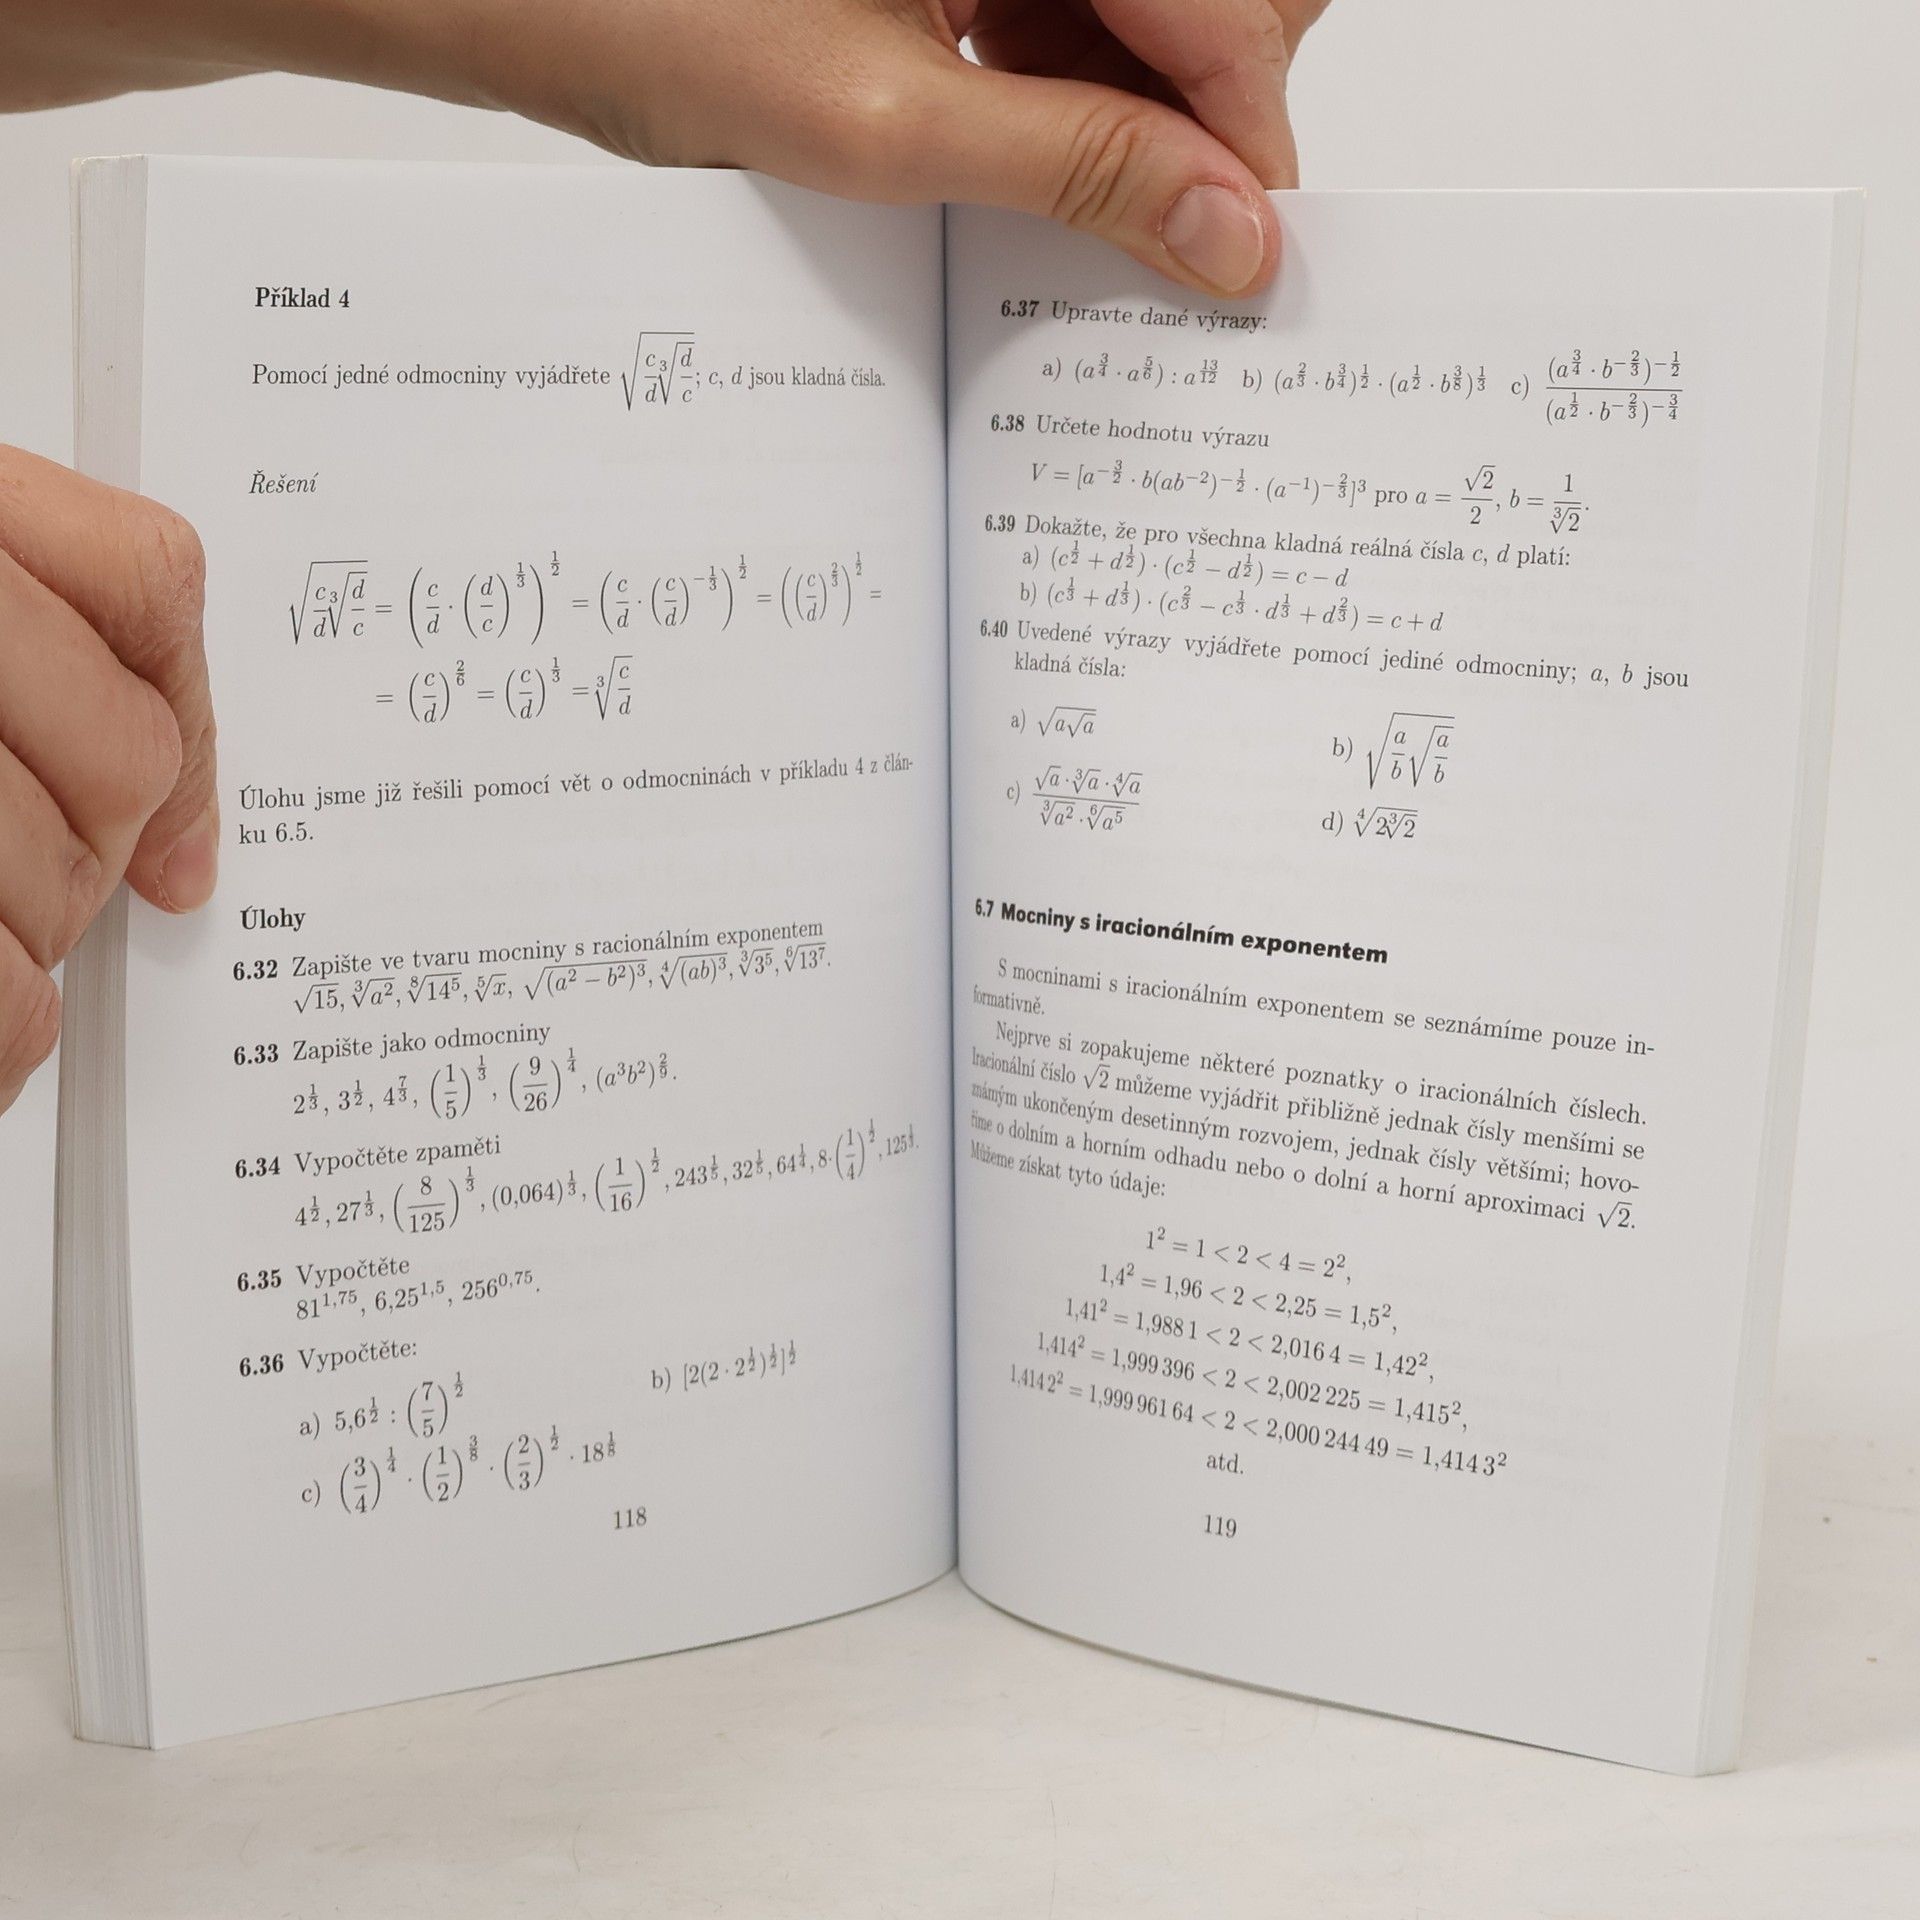 Příklad 4
Pomocí jedné odmocniny vyjádřete √(c/d ∛(d/c)); c, d jsou kladná čísla.
Řešení
√(c/d ∛(d/c)) = (c/d · (d/c)^(1/3))^(1/2) = (c/d · (c/d)^(−1/3))^(1/2) = ((c/d)^(2/3))^(1/2) =
= (c/d)^(2/6) = (c/d)^(1/3) = ∛(c/d)
Úlohu jsme již řešili pomocí vět o odmocninách v příkladu 4 z člán-
ku 6.5.
Úlohy
6.32 Zapište ve tvaru mocniny s racionálním exponentem
√15, ∛(a²), ⁸√(14⁵), ⁵√x, √((a² − b²)³), ⁴√((ab)³), ∛(3⁵), ⁶√(13⁷).
6.33 Zapište jako odmocniny
2^(1/3), 3^(1/2), 4^(7/3), (1/5)^(1/3), (9/26)^(1/4), (a³b²)^(2/9).
6.34 Vypočtěte zpaměti
4^(1/2), 27^(1/3), (8/125)^(1/3), (0,064)^(1/3), (1/16)^(1/2), 243^(1/5), 32^(1/5), 64^(1/4), 8·(1/4)^(1/2), 125^(1/3).
6.35 Vypočtěte
81^(1,75), 6,25^(1,5), 256^(0,75).
6.36 Vypočtěte:
a) 5,6^(1/2) : (7/5)^(1/2) b) [2(2 · 2^(1/2))^(1/2)]^(1/2)
c) (3/4)^(1/4) · (1/2)^(3/8) · (2/3)^(1/2) · 18^(1/8)
118
6.37 Upravte dané výrazy:
a) (a^(3/4) · a^(5/6)) : a^(13/12) b) (a^(2/3) · b^(3/4))^(1/2) · (a^(1/2) · b^(3/8))^(1/3) c) (a^(3/4) · b^(−2/3))^(−1/2) / (a^(1/2) · b^(−2/3))^(−3/4)
6.38 Určete hodnotu výrazu
V = [a^(−3/2) · b(ab^(−2))^(−1/2) · (a^(−1))^(−2/3)]³ pro a = √2/2, b = 1/∛2.
6.39 Dokažte, že pro všechna kladná reálná čísla c, d platí:
a) (c^(1/2) + d^(1/2)) · (c^(1/2) − d^(1/2)) = c − d
b) (c^(1/3) + d^(1/3)) · (c^(2/3) − c^(1/3) · d^(1/3) + d^(2/3)) = c + d
6.40 Uvedené výrazy vyjádřete pomocí jediné odmocniny; a, b jsou
kladná čísla:
a) √(a√a) b) √(a/b √(a/b))
c) (√a · ∛a · ⁴√a) / (∛(a²) · ⁶√(a⁵)) d) ⁴√(2∛2)
6.7 Mocniny s iracionálním exponentem
S mocninami s iracionálním exponentem se seznámíme pouze in-
formativně.
Nejprve si zopakujeme některé poznatky o iracionálních číslech.
Iracionální číslo √2 můžeme vyjádřit přibližně jednak čísly menšími se
známým ukončeným desetinným rozvojem, jednak čísly většími; hovo-
říme o dolním a horním odhadu nebo o dolní a horní aproximaci √2.
Můžeme získat tyto údaje:
1² = 1 < 2 < 4 = 2²,
1,4² = 1,96 < 2 < 2,25 = 1,5²,
1,41² = 1,988 1 < 2 < 2,016 4 = 1,42²,
1,414² = 1,999 396 < 2 < 2,002 225 = 1,415²,
1,414 2² = 1,999 961 64 < 2 < 2,000 244 49 = 1,414 3²
atd.
119